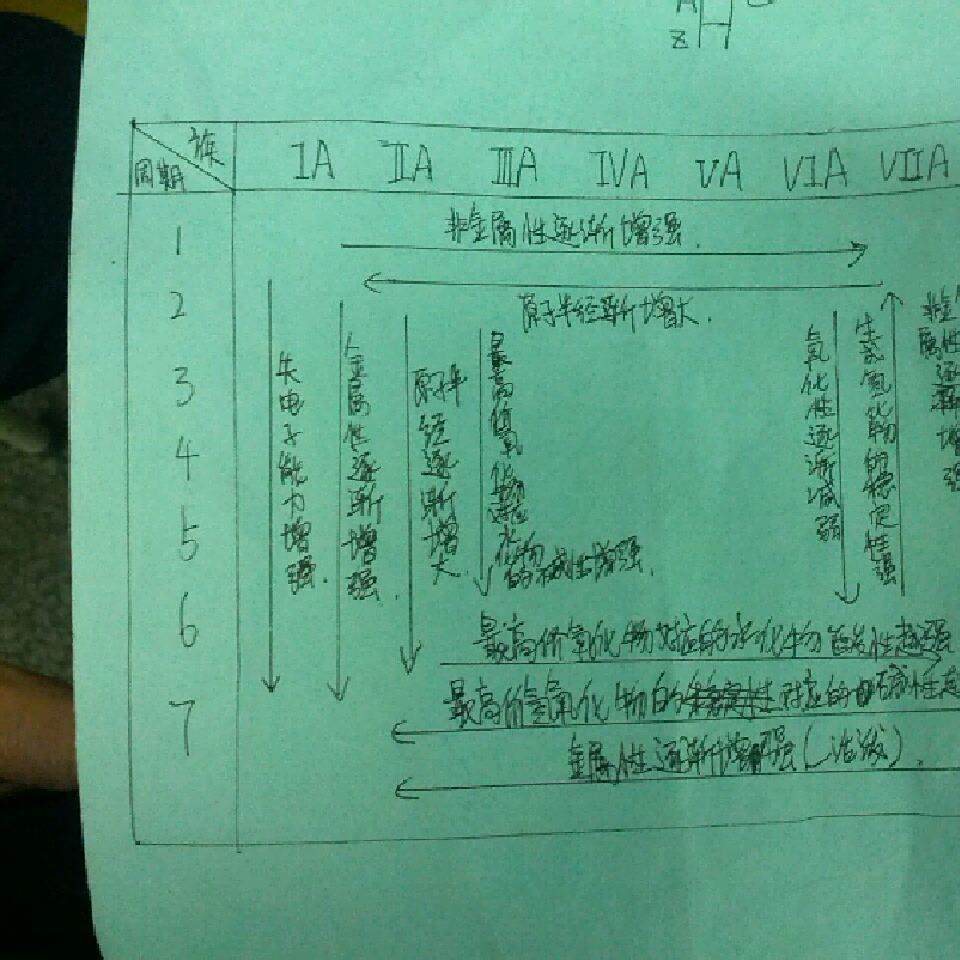 A
Z
族
周期
ⅠA ⅡA ⅢA ⅣA ⅤA ⅥA ⅦA
1
非金属性逐渐增强.
2
原子半径渐增大.
3
4
5
6
7
失电子能力增强.
金属性逐渐增强.
原子半径逐渐增大.
最高价氧化物
水化物的碱性增强.
氧化性逐渐减弱
生氢化物的稳定性强
非金属性逐渐增强
最高价氧化物对应的水化物酸性越强
最高价氢氧化物的对应的碱性
金属性逐渐增强(活泼).